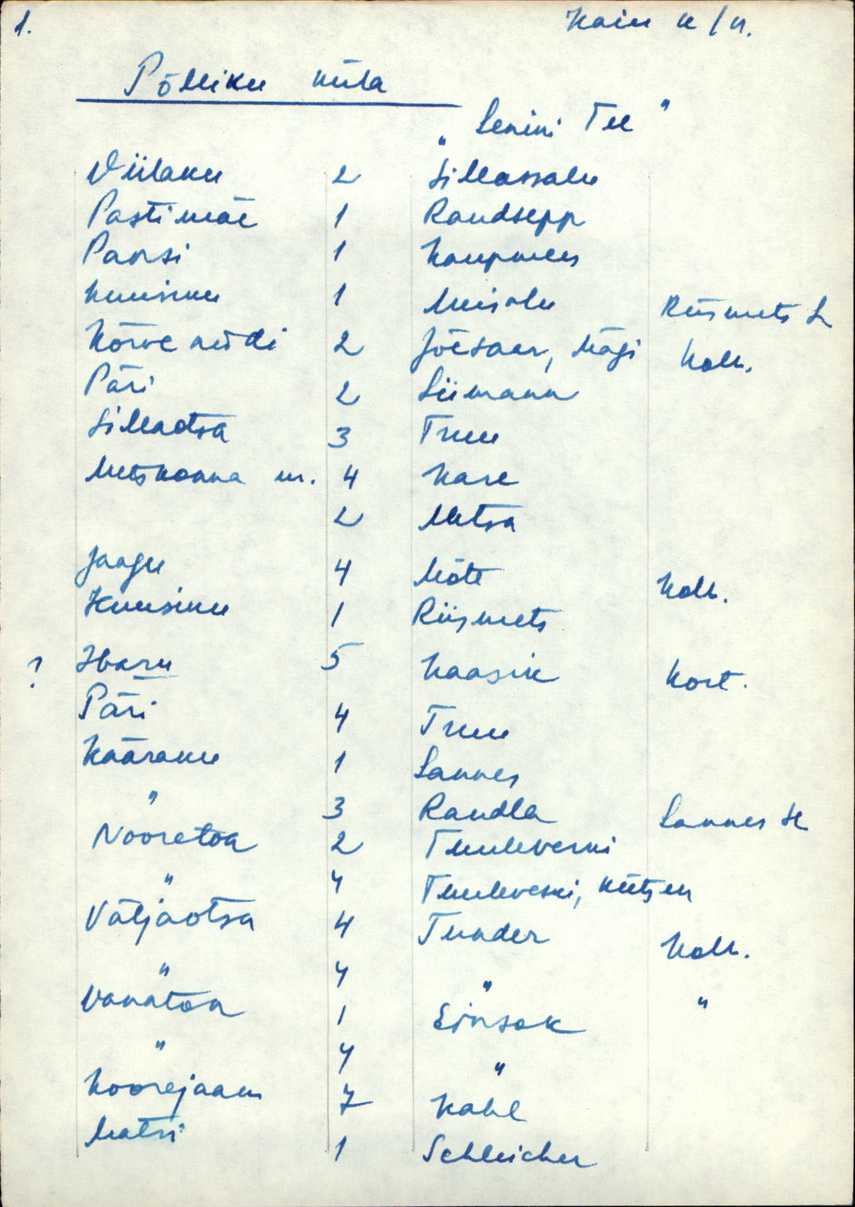 1. Koeru k/n.
Põlliku küla
„Lenini Tee"
Viilaku 2 Sillassalu
Pastimäe 1 Raudsepp
Paosi 1 Kaupmees
Kuusiku 1 Meisalu Riismets L
Kõrve 2 Jõesaar, Mägi Kolh.
Päri 2 Siimann
Sillaotsa 3 Truu
Metskonna m. 4 Kase
2 Metsa
Jaagu 4 Mõte Kolh.
Kuusiku 1 Riismets
? Ibaru 5 Kaasik Kort.
Päri 4 Truu
Kääraku 1 Sannes
" 3 Raudla Sannes
Nooretoa 2 Tuuleveski
" 4 Tuuleveski, Kütsen
Väljaotsa 4 Tunder Kolh.
" 4 "
Vanatoa 1 Einsok "
" 4 "
Koorejaam 7 Kahl
Matsi 1 Schleicher